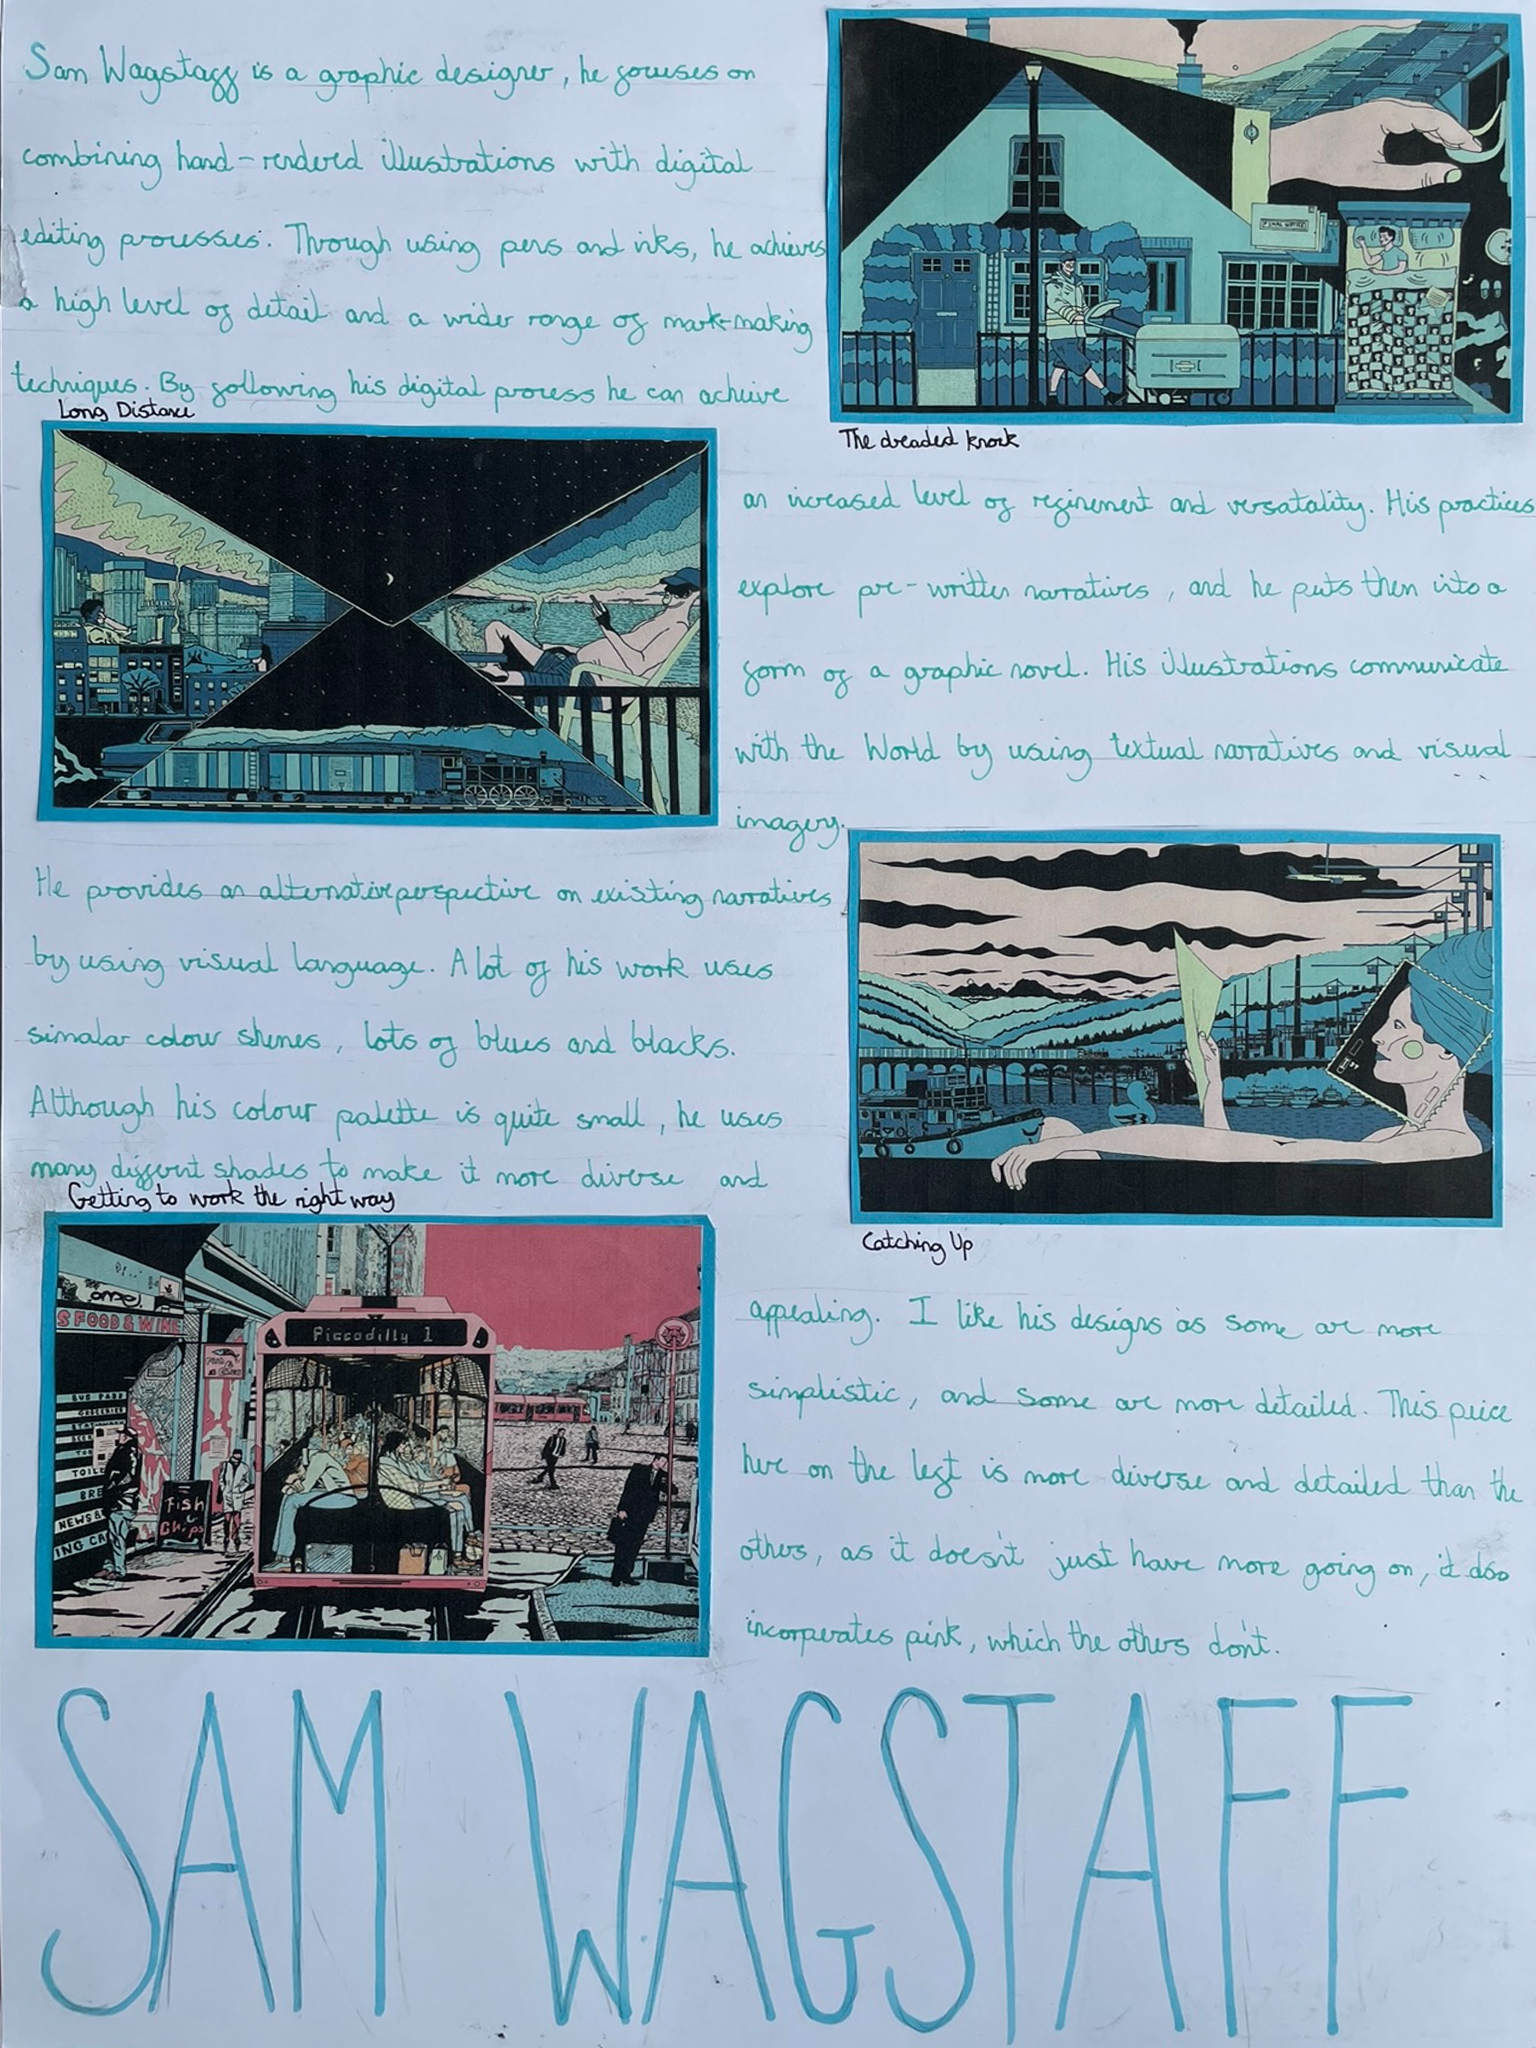 Sam Wagstaff is a graphic designer, he focuses on
combining hand-rendered illustrations with digital
editing processes. Through using pens and inks, he achieves
a high level of detail and a wider range of mark-making
techniques. By following his digital process he can achieve
Long Distance
The dreaded knock
FINAL NOTICE
an increased level of refinement and versatality. His practices
explore pre-written narratives, and he puts them into a
form of a graphic novel. His illustrations communicate
with the World by using textual narratives and visual
imagery.
He provides an alternative perspective on existing narratives
by using visual language. A lot of his work uses
simalar colour shemes, lots of blues and blacks.
Although his colour palette is quite small, he uses
many different shades to make it more diverse and
Getting to work the right way
Catching Up
S FOOD & WINE
Piccadilly 1
BUS PASS
GROCERIES
TOILE
BRE
NEWS &
ING CA
Fish
& Chips
appealing. I like his designs as some are more
simplistic, and some are more detailed. This peice
here on the left is more diverse and detailed than the
others, as it doesn't just have more going on, it also
incorperates pink, which the others don't.
SAM WAGSTAFF